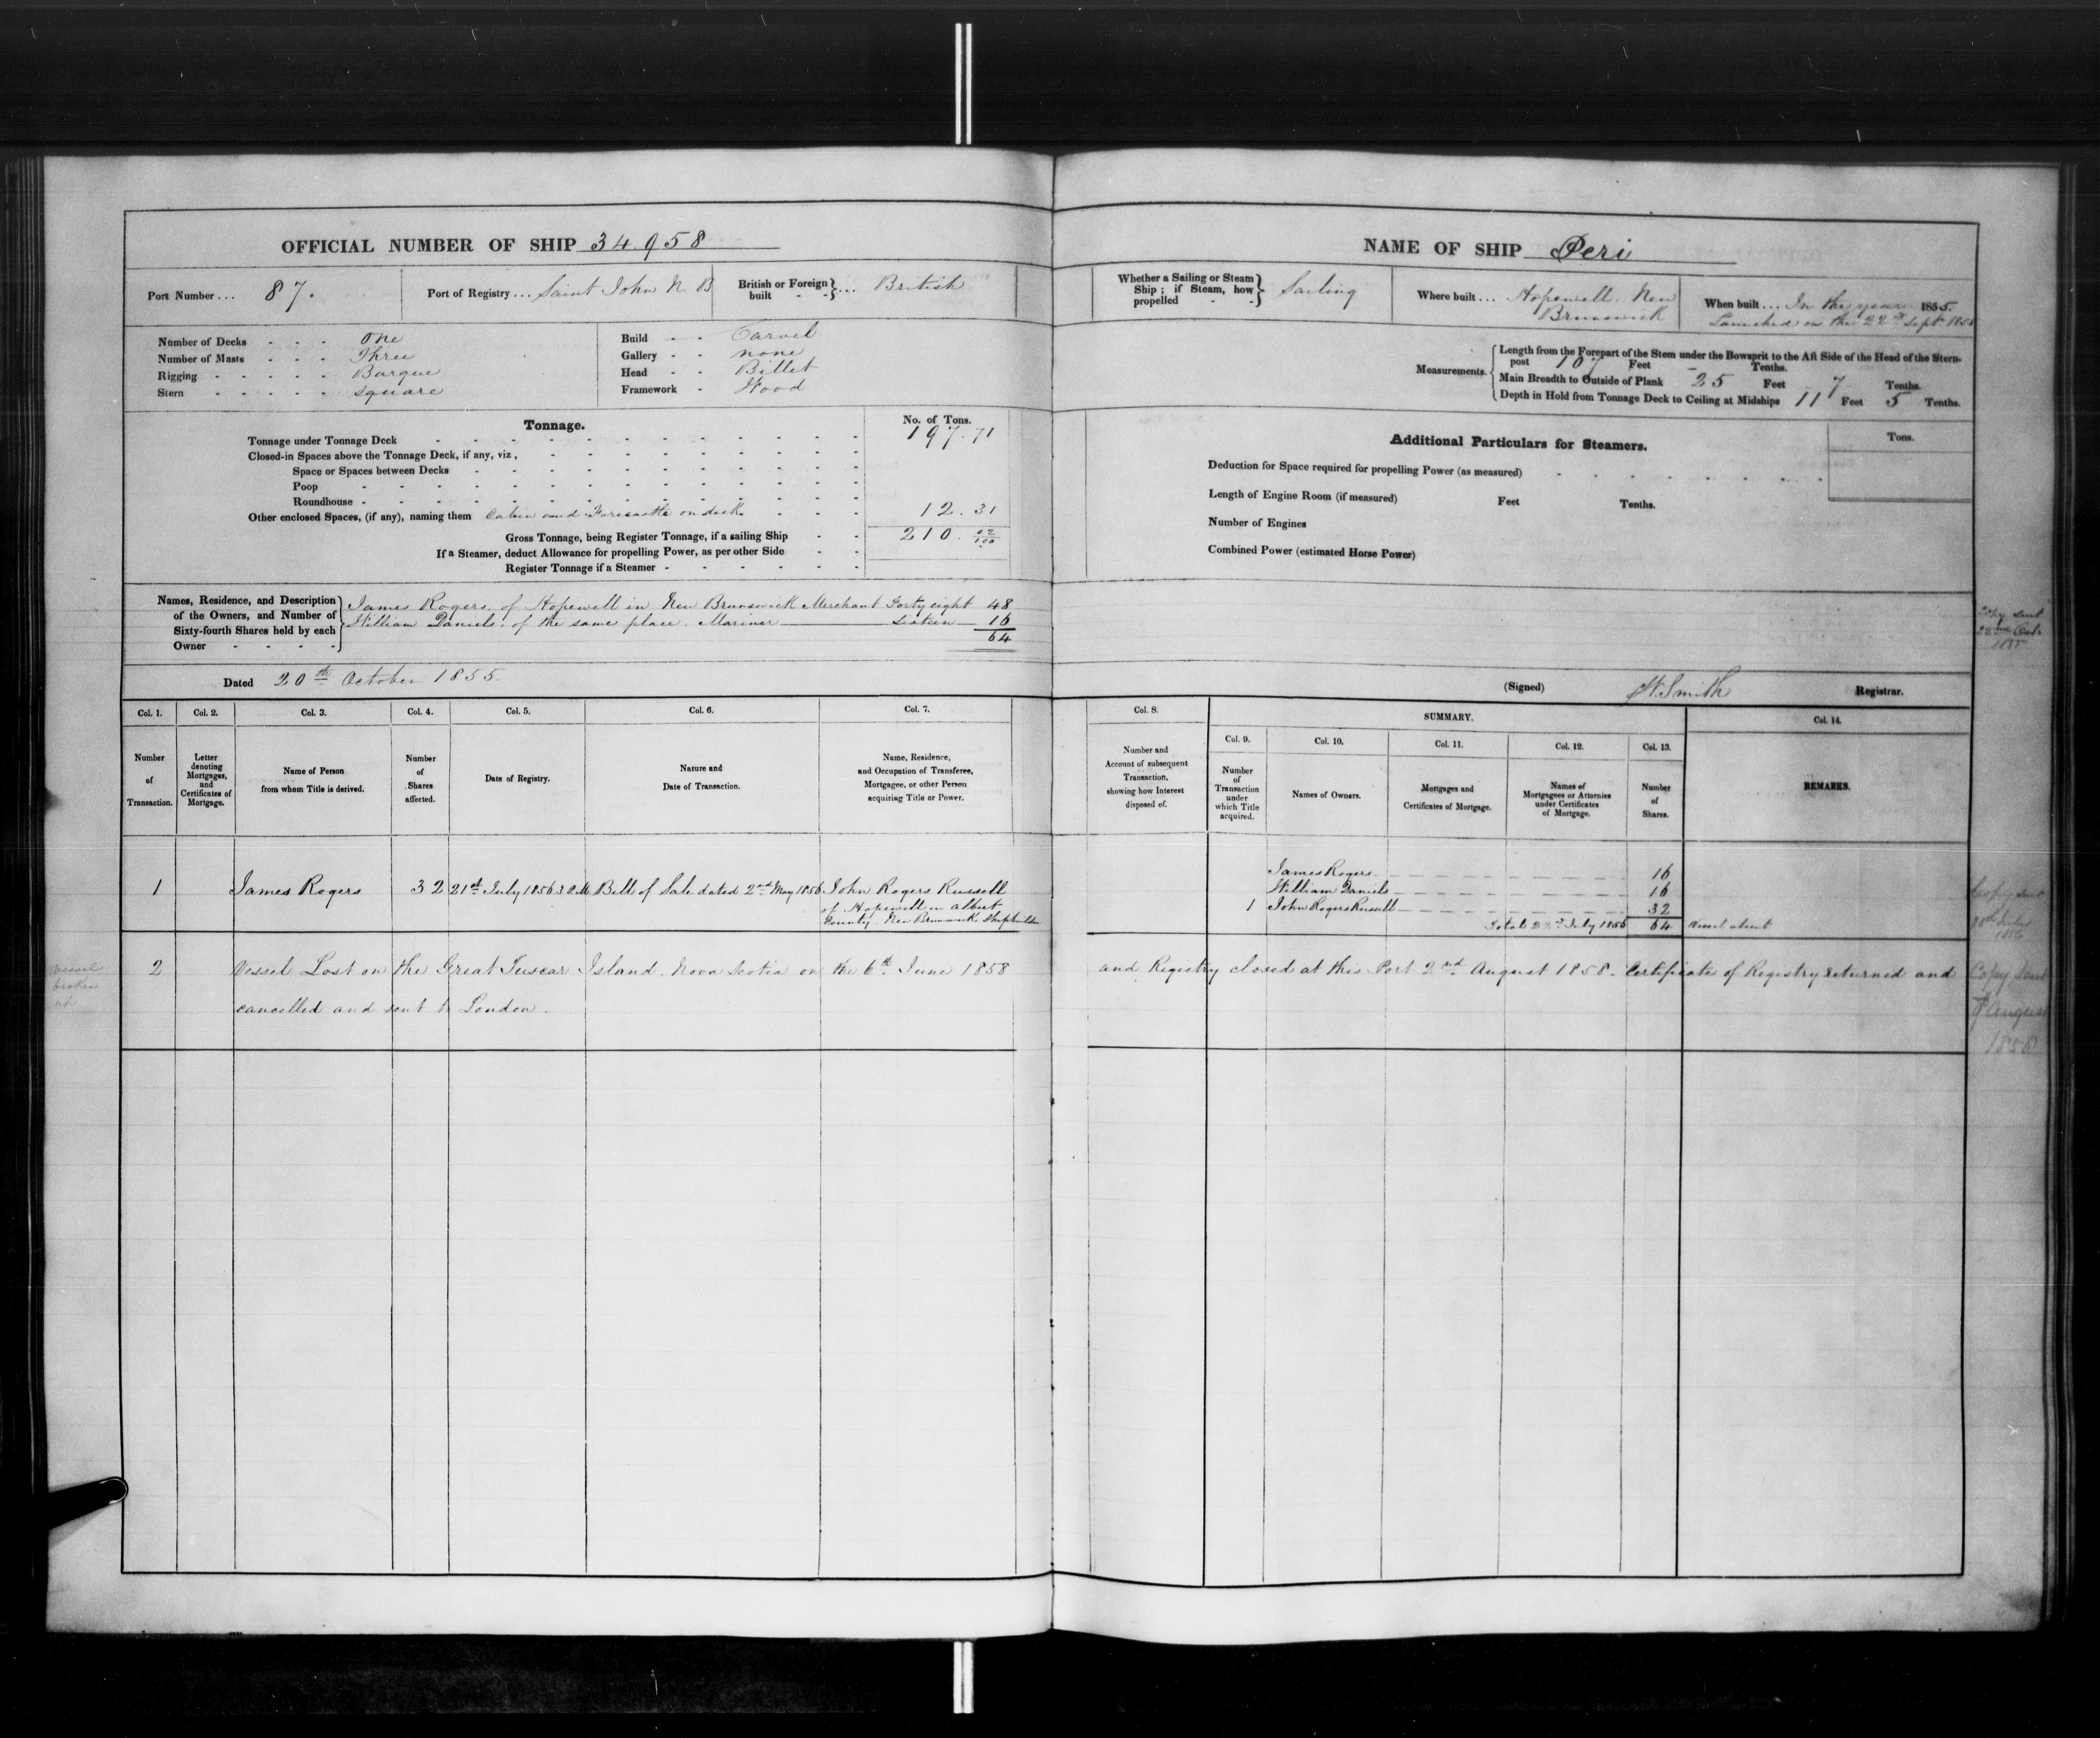 OFFICIAL NUMBER OF SHIP 34.958
NAME OF SHIP Peri
Port Number ... 87.
Port of Registry ... Saint John N B
British or Foreign built } ... British
Whether a Sailing or Steam Ship; if Steam, how propelled } Sailing
Where built ... Hopewell. New Brunswick
When built ... In the year 1855.
Launched on the 22nd Sept. 1855
Number of Decks - - - One
Number of Masts - - - Three
Rigging - - - - - Barque
Stern - - - - - square
Build - - Carvel
Gallery - - none
Head - - Billet
Framework - Wood
Measurements.
Length from the Forepart of the Stem under the Bowsprit to the Aft Side of the Head of the Stern-
post 107 Feet - Tenths.
Main Breadth to Outside of Plank 25 Feet 7 Tenths.
Depth in Hold from Tonnage Deck to Ceiling at Midships 11 Feet 5 Tenths.
Tonnage.
No. of Tons.
Tonnage under Tonnage Deck 197.71
Closed-in Spaces above the Tonnage Deck, if any, viz,
Space or Spaces between Decks
Poop
Roundhouse
Other enclosed Spaces, (if any), naming them Cabin and Forecastle on deck 12.31
Gross Tonnage, being Register Tonnage, if a sailing Ship 210. 02/100
If a Steamer, deduct Allowance for propelling Power, as per other Side
Register Tonnage if a Steamer
Additional Particulars for Steamers.
Tons.
Deduction for Space required for propelling Power (as measured)
Length of Engine Room (if measured) Feet Tenths.
Number of Engines
Combined Power (estimated Horse Power)
Names, Residence, and Description of the Owners, and Number of Sixty-fourth Shares held by each Owner
James Rogers. of Hopewell in New Brunswick Merchant Forty eight 48
William Daniels. of the same place. Mariner Sixteen 16
64
Copy sent
22nd Octr
1855
Dated 20th October 1855.
(Signed) W. Smith Registrar.
Col. 1. Col. 2. Col. 3. Col. 4. Col. 5. Col. 6. Col. 7. Col. 8. SUMMARY. Col. 14.
Col. 9. Col. 10. Col. 11. Col. 12. Col. 13.
Number of Transaction.
Letter denoting Mortgages, and Certificates of Mortgage.
Name of Person from whom Title is derived.
Number of Shares affected.
Date of Registry.
Nature and Date of Transaction.
Name, Residence, and Occupation of Transferee, Mortgagee, or other Person acquiring Title or Power.
Number and Account of subsequent Transaction, showing how Interest disposed of.
Number of Transaction under which Title acquired.
Names of Owners.
Mortgages and Certificates of Mortgage.
Names of Mortgagees or Attornies under Certificates of Mortgage.
Number of Shares.
REMARKS.
1 James Rogers 32 21st July 1856 3 P.M. Bill of Sale dated 2nd May 1856 John Rogers Russell
of Hopewell in Albert
County. New Brunswick Shipbuilder
James Rogers 16
William Daniels 16
1 John Rogers Russell 32
Total July 1856 64 Vessel absent
Copy sent
July
1856
2 Vessel Lost on the Great Tuscar Island. Nova Scotia on the 6th June 1858 and Registry closed at this Port 2nd August 1858. Certificate of Registry returned and
cancelled and sent to London.
Vessel
broken
up
Copy sent
August
1858